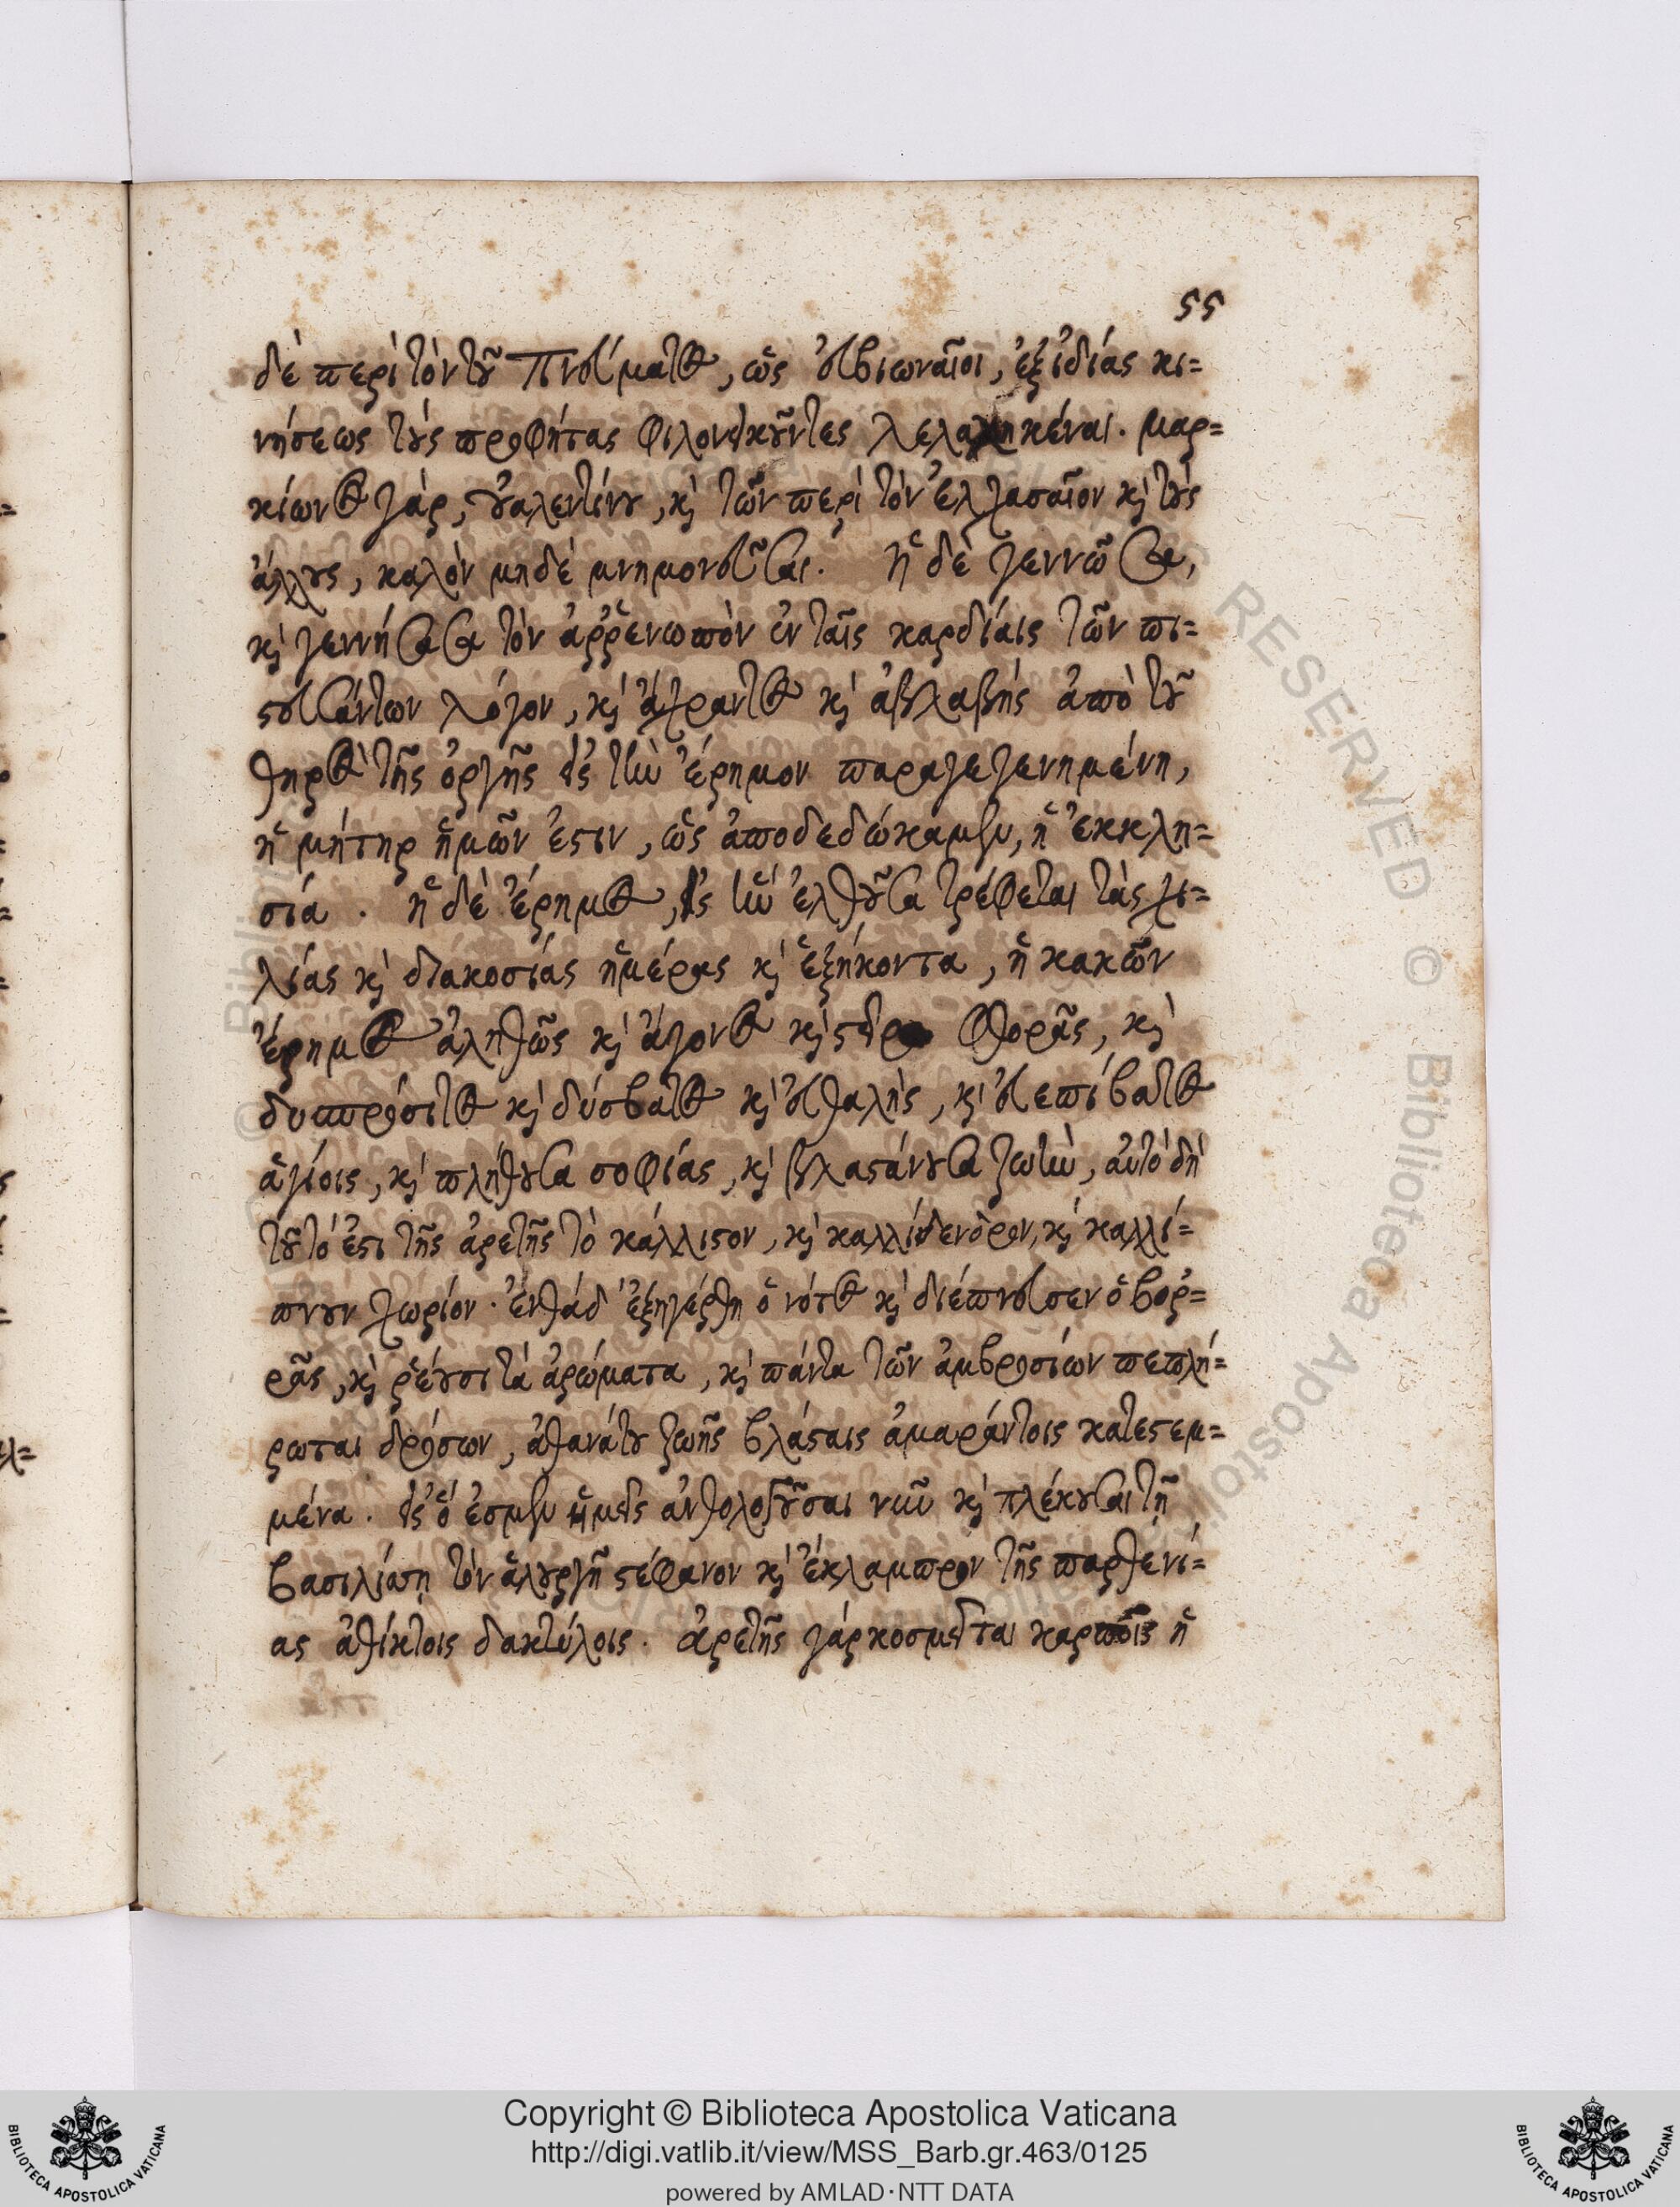 55
δὲ περὶ τὸν τοῦ Πνεύματος, ὡς ἐβιωναῖοι, ἐξ ἰδίας κι=
νήσεως τοὺς προφήτας φιλονεικοῦντες λελαληκέναι. μαρ=
κίωνος γὰρ, ουαλεντίνου, καὶ τῶν περὶ τὸν ἐλχασαῖον καὶ τοὺς
ἄλλους, καλὸν μηδὲ μνημονεῦσαι. ἡ δὲ γεννῶσα,
καὶ γεννήσασα τὸν ἀῤῥενωπὸν ἐν ταῖς καρδίαις τῶν πι=
στευσάντων λόγον, καὶ ἄχραντος καὶ ἀβλαβὴς ἀπὸ τοῦ
θηρὸς τῆς ὀργῆς εἰς τὴν ἔρημον παραγεγενημένη,
ἡ μήτηρ ἡμῶν ἐστιν, ὡς ἀποδεδώκαμεν, ἡ ἐκκλη=
σία. ἡ δὲ ἔρημος, εἰς ἣν ἐλθοῦσα τρέφεται τὰς χι=
λίας καὶ διακοσίας ἡμέρας καὶ ἑξήκοντα, ἡ κακῶν
ἔρημος ἀληθῶς καὶ ἄγονος καὶ στεῖρα φθορᾶς, καὶ
δυσπρόσιτος καὶ δύσβατος καὶ εὐθαλὴς, καὶ εὐεπίβατος
ἁγίοις, καὶ πλήθουσα σοφίας, καὶ βλαστάνουσα ζωὴν, αὐτὸ δὴ
τοῦτό ἐστι τῆς ἀρετῆς τὸ κάλλιστον, καὶ καλλίδενδρον, καὶ καλλί=
πνουν χωρίον. ἐνθάδ' ἐξηγέρθη ὁ νότος καὶ διέπνευσεν ὁ βοῤ=
ρᾶς, καὶ ῥέουσι τὰ ἀρώματα, καὶ πάντα τῶν ἀμβροσίων πεπλή=
ρωται δρόσων, ἀθανάτου ζωῆς βλάσταις ἀμαράντοις κατεστεμ=
μένα. εἰς ὃ ἐσμεν ἡμεῖς ἀνθολογοῦσαι νῦν καὶ πλέκουσαι τῇ
βασιλίσσῃ τὸν ἁλουργῆ στέφανον καὶ ἔκλαμπρον τῆς παρθενί=
ας ἀθίκτοις δακτύλοις. ἀρετῆς γὰρ κοσμεῖται καρποῖς ἡ
Copyright © Biblioteca Apostolica Vaticana
http://digi.vatlib.it/view/MSS_Barb.gr.463/0125
powered by AMLAD·NTT DATA
BIBLIOTECA APOSTOLICA VATICANA
BIBLIOTECA APOSTOLICA VATICANA